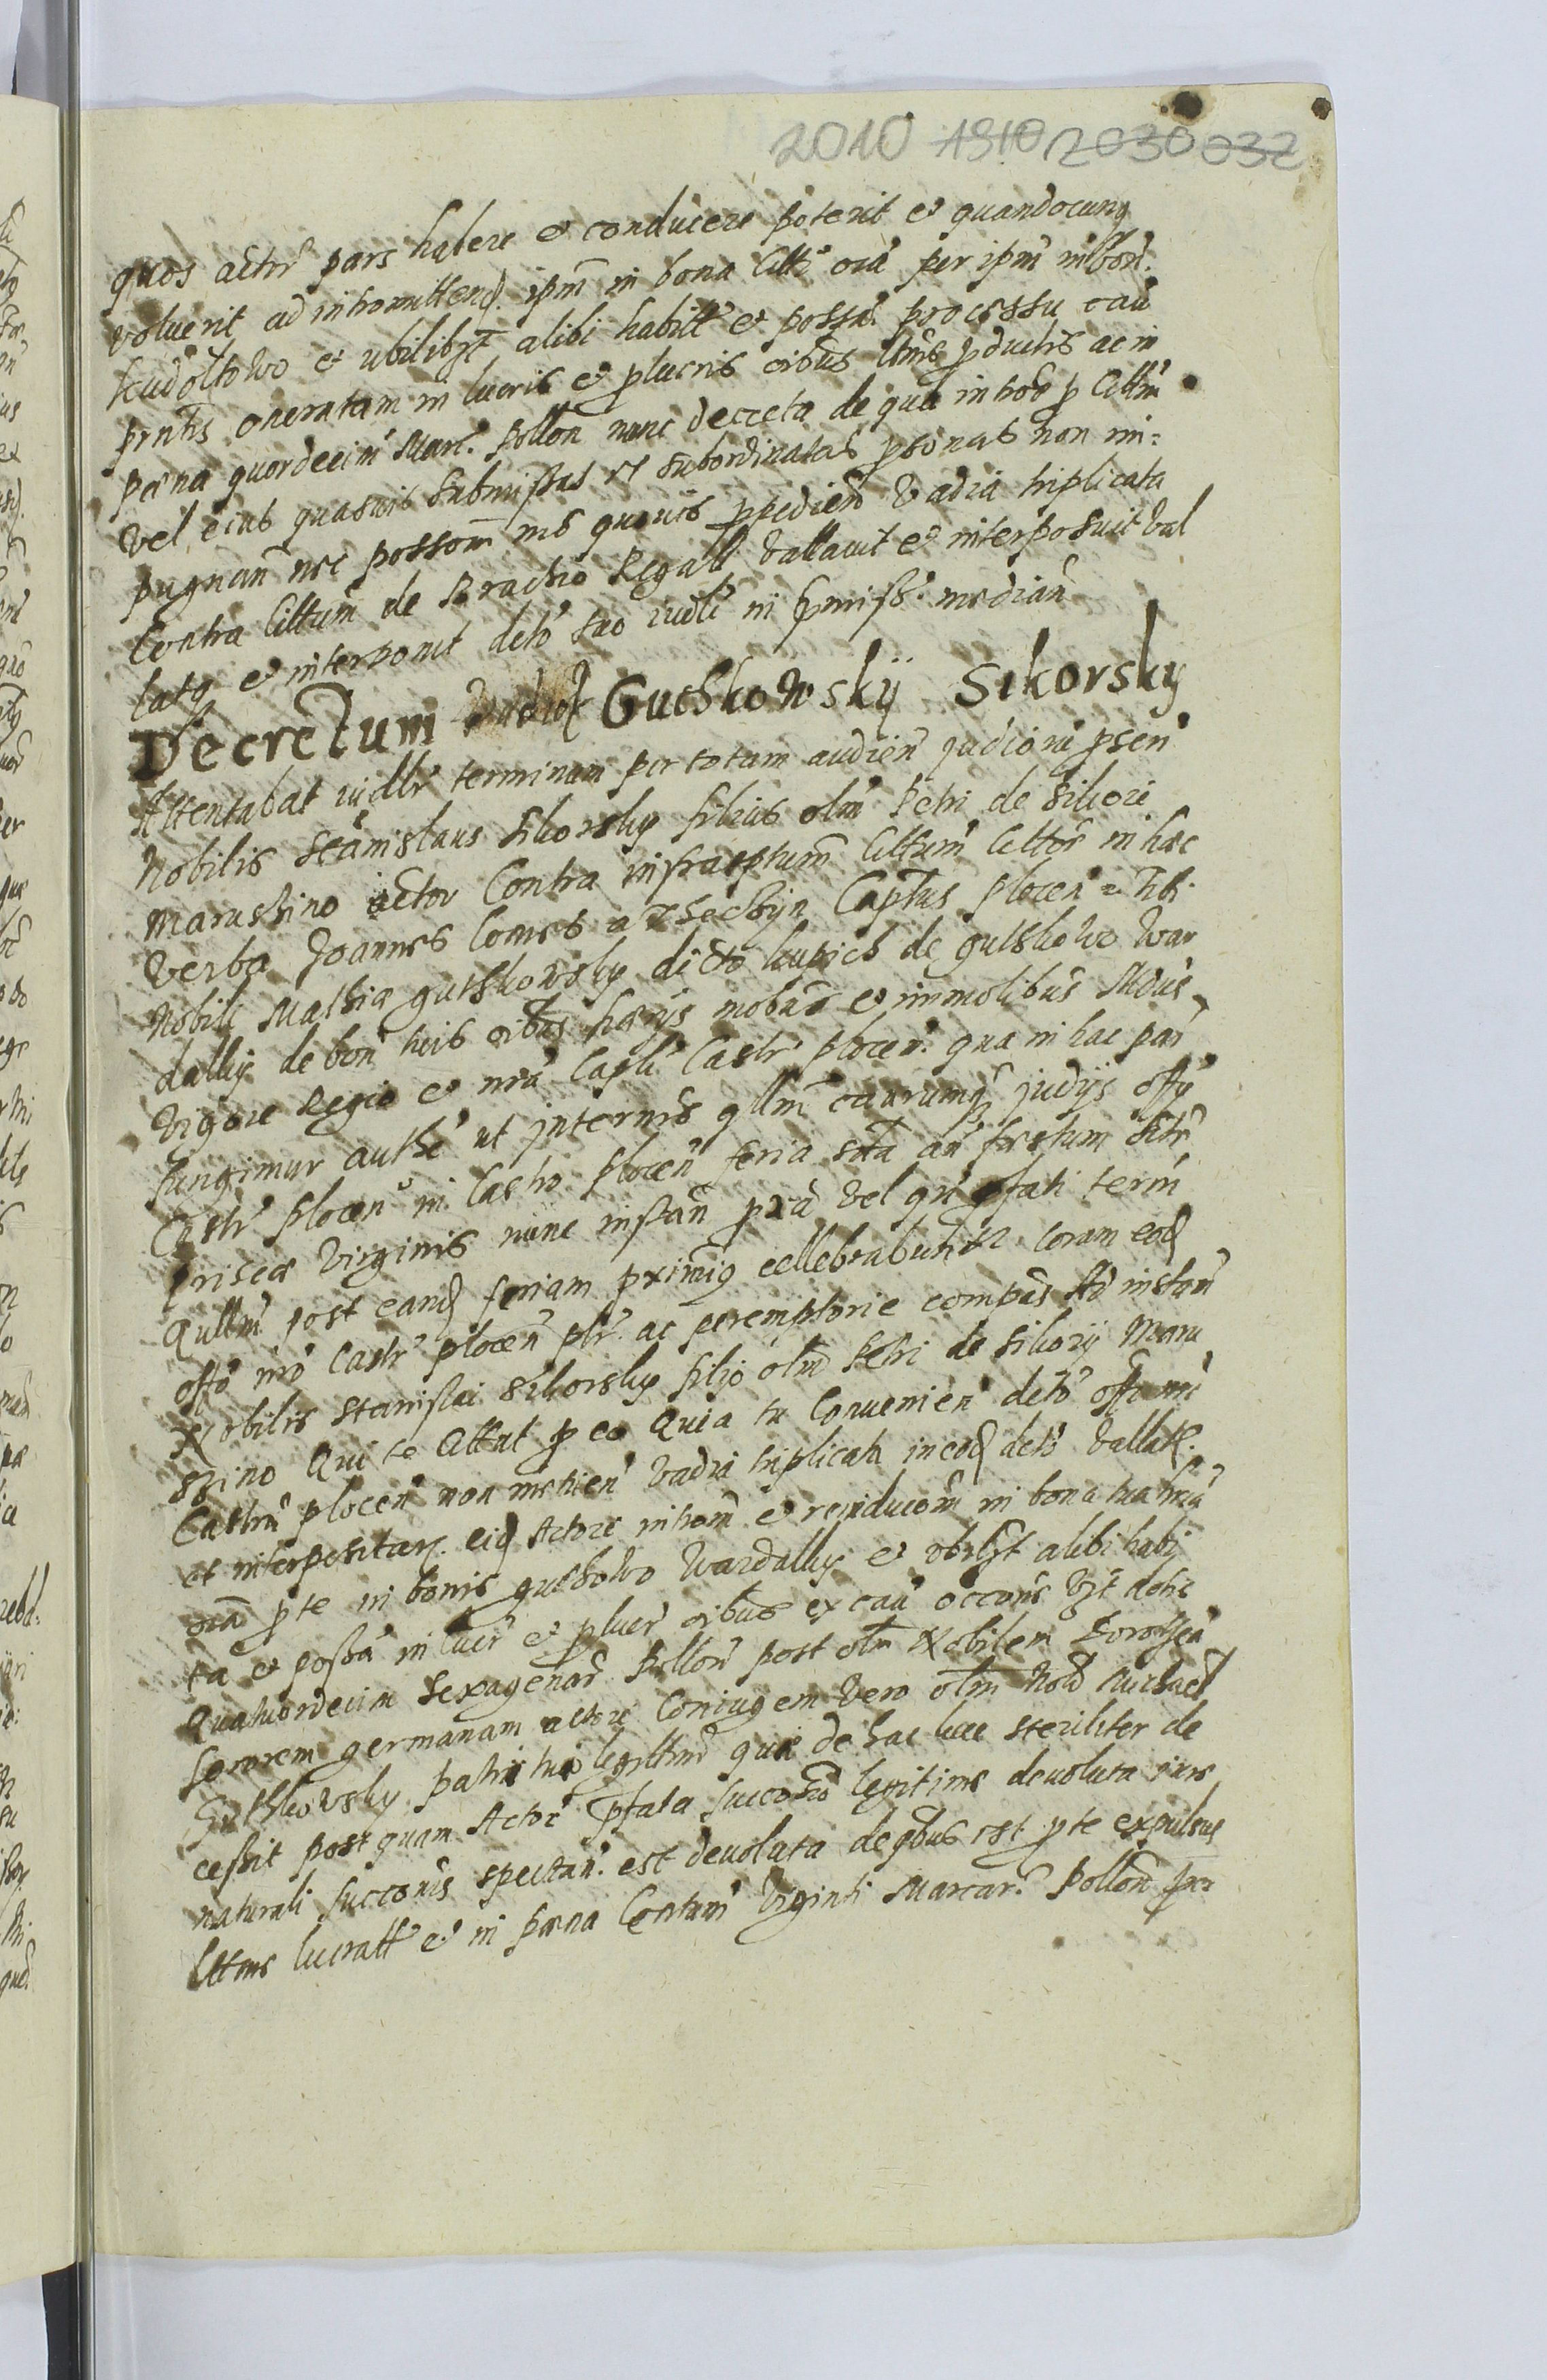 2010 1910 2030 032
quos actr pars habere et conducere poterit et quandocunq
voluerit ad intromittend ipm in bona Citti oia per ipm in bon
et ubilibzt alibi habitt et possa processu cau
prntis oneratam in lucris et plucris oibus ltimis productis ac in
pæna quordecim Marc. pollon nunc decreta de qua intros p Cittm
vel eius quasuis submissas et subordinatas psonas non im=
pugnan nec possom ms quouis ppedien Vadia triplicata
Contra Cittum de Brachio Regali vallauit et interposuit val
latq et interponit deto suo iudli in pmiss. median
Decretum Gutkowskÿ Sikorsky
Attentabat iudlr terminum per totam audien judiorum psen
Nobilis Stanislaus Sikorsky filius olm Petri de Sikori
Marussino actor Contra infrascptum Cittum Cittor in hæc
verba Joannes Comes a Capttus plocen Tibi
Nobili Mathia gutskowsky dicto de gutskowo War
dalky de bon tuis oibus harijs mobus et immolibus Mdus
Vigore Regio et nra Capli Castr plocen. qua in hac par
fungimur authe ut in termis qllm caurumq judijs offy
Castr plocen in Castro plocen feria sta an festum Stæ
priscæ Virginis nunc instan pxa vel qn pfati term
qullm post eand feriam pximiq cellebrabuntur coram eod
offo nro Castr plocen plr ac peremptorie compās Ad instan
Nobilis Stanislai Sikorsky filio olm Petri de Sikorij Maru
ssino Qui te Attat p eo Quia tu Convenien deto offi nri
Castrn plocen non metuen vadia triplicata in eod deto vallat.
et interpositar. eid Actore introm et reinducom in bona tua
oia p te in bonis gutkowo Wardalky et vbilzt alibi habi
ta et possa in lucr et plucr oibus ex cau occonis vzt dotis
Quatuordecim sexagenar pollon post olm Nobilem Dorothea
sororem germanam actore Coniugem vero olm Nob Michael
Gutkowsky patri tui legittim quæ de hac luce steriliter de
cessit post quam Actor pfata successio legitime devoluta iure
naturali succonis spectan. est devoluta de qbus est p te expulsus
lttime lucratt et in pæna Centum viginti Marcar. pollon